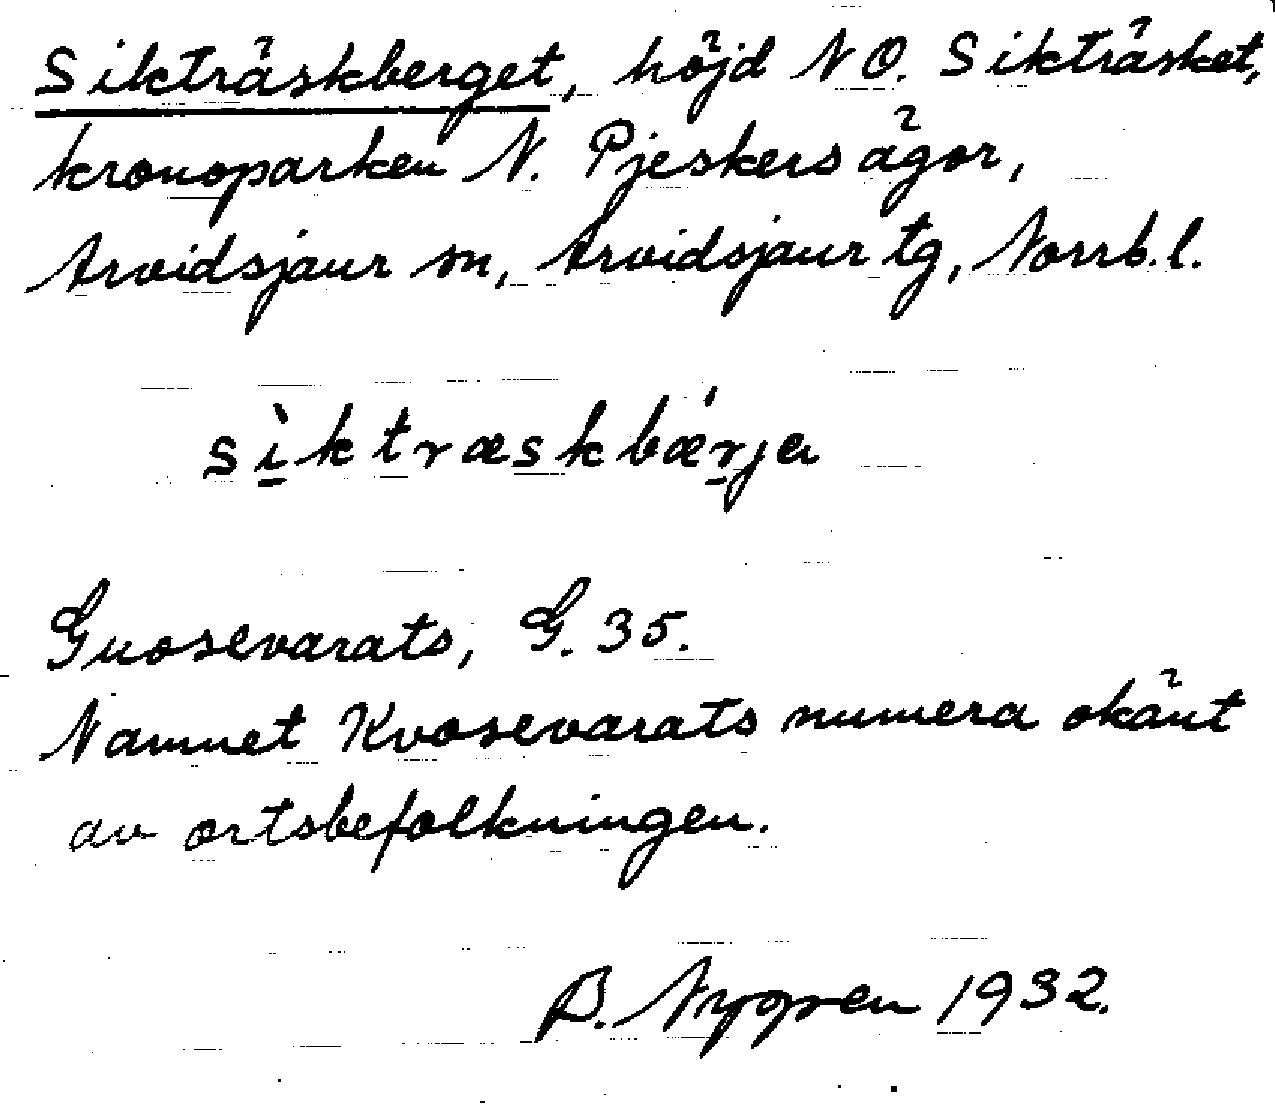 Sikträskberget, höjd NO. Sikträsket,
kronoparken N. Pjeskers ägor,
Arvidsjaur sn, Arvidsjaur tg, Norrb.l.
sìktræskbǽrja
Guosevarats, G. 35.
Namnet Kvosevarats numera okänt
av ortsbefolkningen.
B. Nygren 1932.